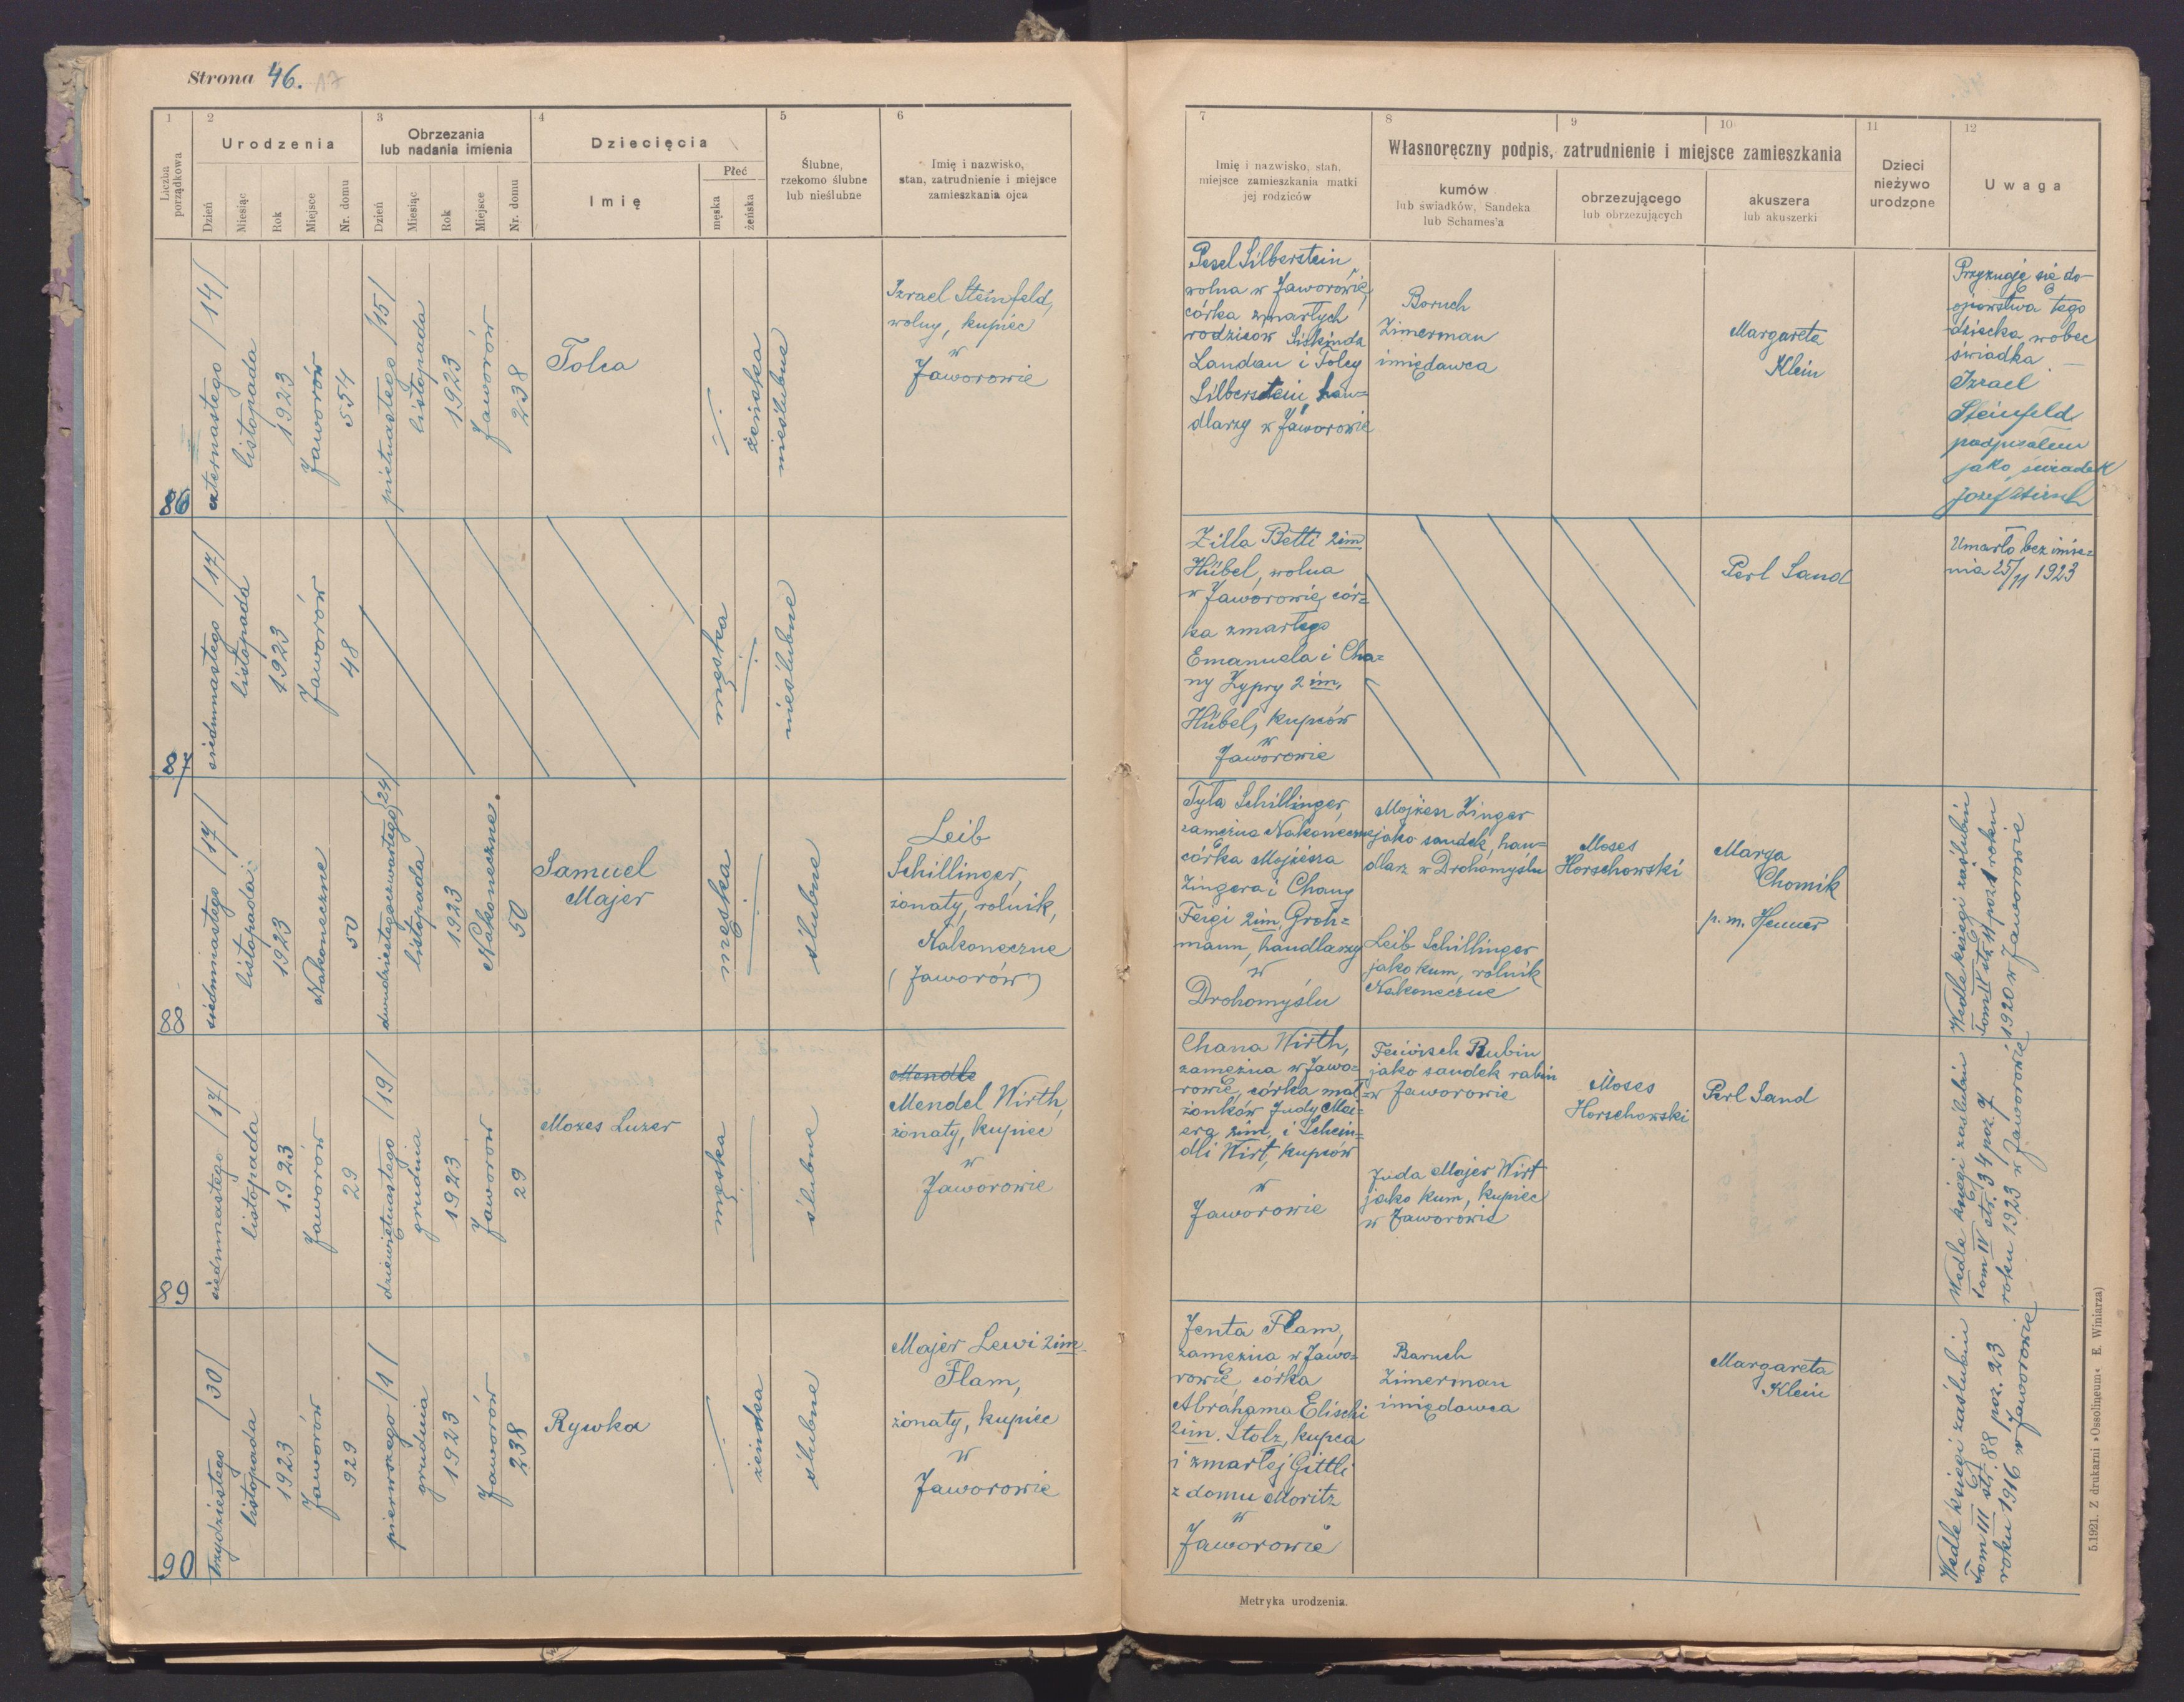 Strona 46. 17
1
2
3
4
5
6
Liczba porządkowa
Urodzenia
Obrzezania
lub nadania imienia
Dziecięcia
Ślubne,
rzekomo ślubne
lub nieślubne
Imię i nazwisko,
stan, zatrudnienie i miejsce
zamieszkania ojca
Dzień
Miesiąc
Rok
Miejsce
Nr. domu
Dzień
Miesiąc
Rok
Miejsce
Nr. domu
Imię
Płeć
męska
żeńska
7
8
9
10
11
12
Imię i nazwisko, stan,
miejsce zamieszkania matki
jej rodziców
Własnoręczny podpis, zatrudnienie i miejsce zamieszkania
kumów
lub świadków, Sandeka
lub Schames'a
obrzezującego
lub obrzezujących
akuszera
lub akuszerki
Dzieci
nieżywo
urodzone
Uwaga
86
czternastego /14/
listopada
1923
Jaworów
554
pietnastego /15/
listopada
1923
Jaworów
238
Tolca
żeńska
nieślubne
Izrael Steinfeld,
wolny, kupiec
w
Jaworowie
Pesel Silberstein
wolna w Jaworowie,
córka zmarłych
rodziców Siskinda
Landau i Tolcy
Silberstein, han=
dlarzy w Jaworowie
Boruch
Zimerman
imiędawca
Margareta
Klein
Przyznaję się do
ojcowstwa tego
dziecka wobec
świadka —
Izrael
Steinfeld
podpisałem
jako świadek
87
siedmnastego /17/
listopada
1923
Jaworów
48
męska
nieślubne
Zilla Betti 2im
Hübel, wolna
w Jaworowie, cór=
ka zmarłego
Emanuela i Cha=
ny Zypry 2 im.
Hübel, kupców
w
Jaworowie
Perl Sand
Umarło bez imie=
nia 25/11 1923
88
siedmnastego /17/
listopada
1923
Nakoneczne
50
dwudziestegoczwartego /24/
listopada
1923
Nakoneczne
50
Samuel
Majer
męska
ślubne
Leib
Schillinger,
żonaty, rolnik,
Nakoneczne
(Jaworów)
Tyla Schillinger,
zamężna Nakoneczne
córka Mojżesza
Zingera i Chany
Feigi 2im. Groh=
mann, handlarzy
w
Drohomyślu
Mojżesz Zinger
jako sandek, han=
dlarz w Drohomyślu
Leib Schillinger
jako kum, rolnik
Nakoneczne
Moses
Horschowski
Marya
Chomik
p. m.
Wedle księgi zaślubin
Tom IV str. 11 poz 1 roku
1920 w Jaworowie
89
siedmnastego /17/
listopada
1923
Jaworów
29
dziewiętnastego /19/
grudnia
1923
Jaworów
29
Mozes Luzer
męska
ślubne
Mendle
Mendel Wirth,
żonaty, kupiec
w
Jaworowie
Chana Wirth,
zamężna w Jawo=
rowie, córka mał=
żonków Judy Mei=
era 2im. i Schein=
dli Wirt, kupców
w
Jaworowie
Feiwisch Rubin
jako sandek rabin
w Jaworowie
Juda Majer Wirt
jako kum, kupiec
w Jaworowie
Moses
Horschowski
Perl Sand
Wedle księgi zaślubin
tom IV str. 34 poz 7
roku 1923 w Jaworowie
90
trzydziestego /30/
listopada
1923
Jaworów
929
pierwszego /1/
grudnia
1923
Jaworów
238
Rywka
żeńska
ślubne
Majer Lewi 2im.
Flam,
żonaty, kupiec
w
Jaworowie
Jenta Flam,
zamężna w Jawo=
rowie, córka
Abrahama Elischi
2im. Stolz, kupca
i zmarłej Gittli
z domu Moritz
w
Jaworowie
Baruch
Zimerman
imiędawca
Margareta
Klein
Wedle księgi zaślubin
Tom III str. 88 poz. 23
roku 1916 w Jaworowie
Metryka urodzenia.
5.1921. Z drukarni »Ossolineum« E. Winiarza)